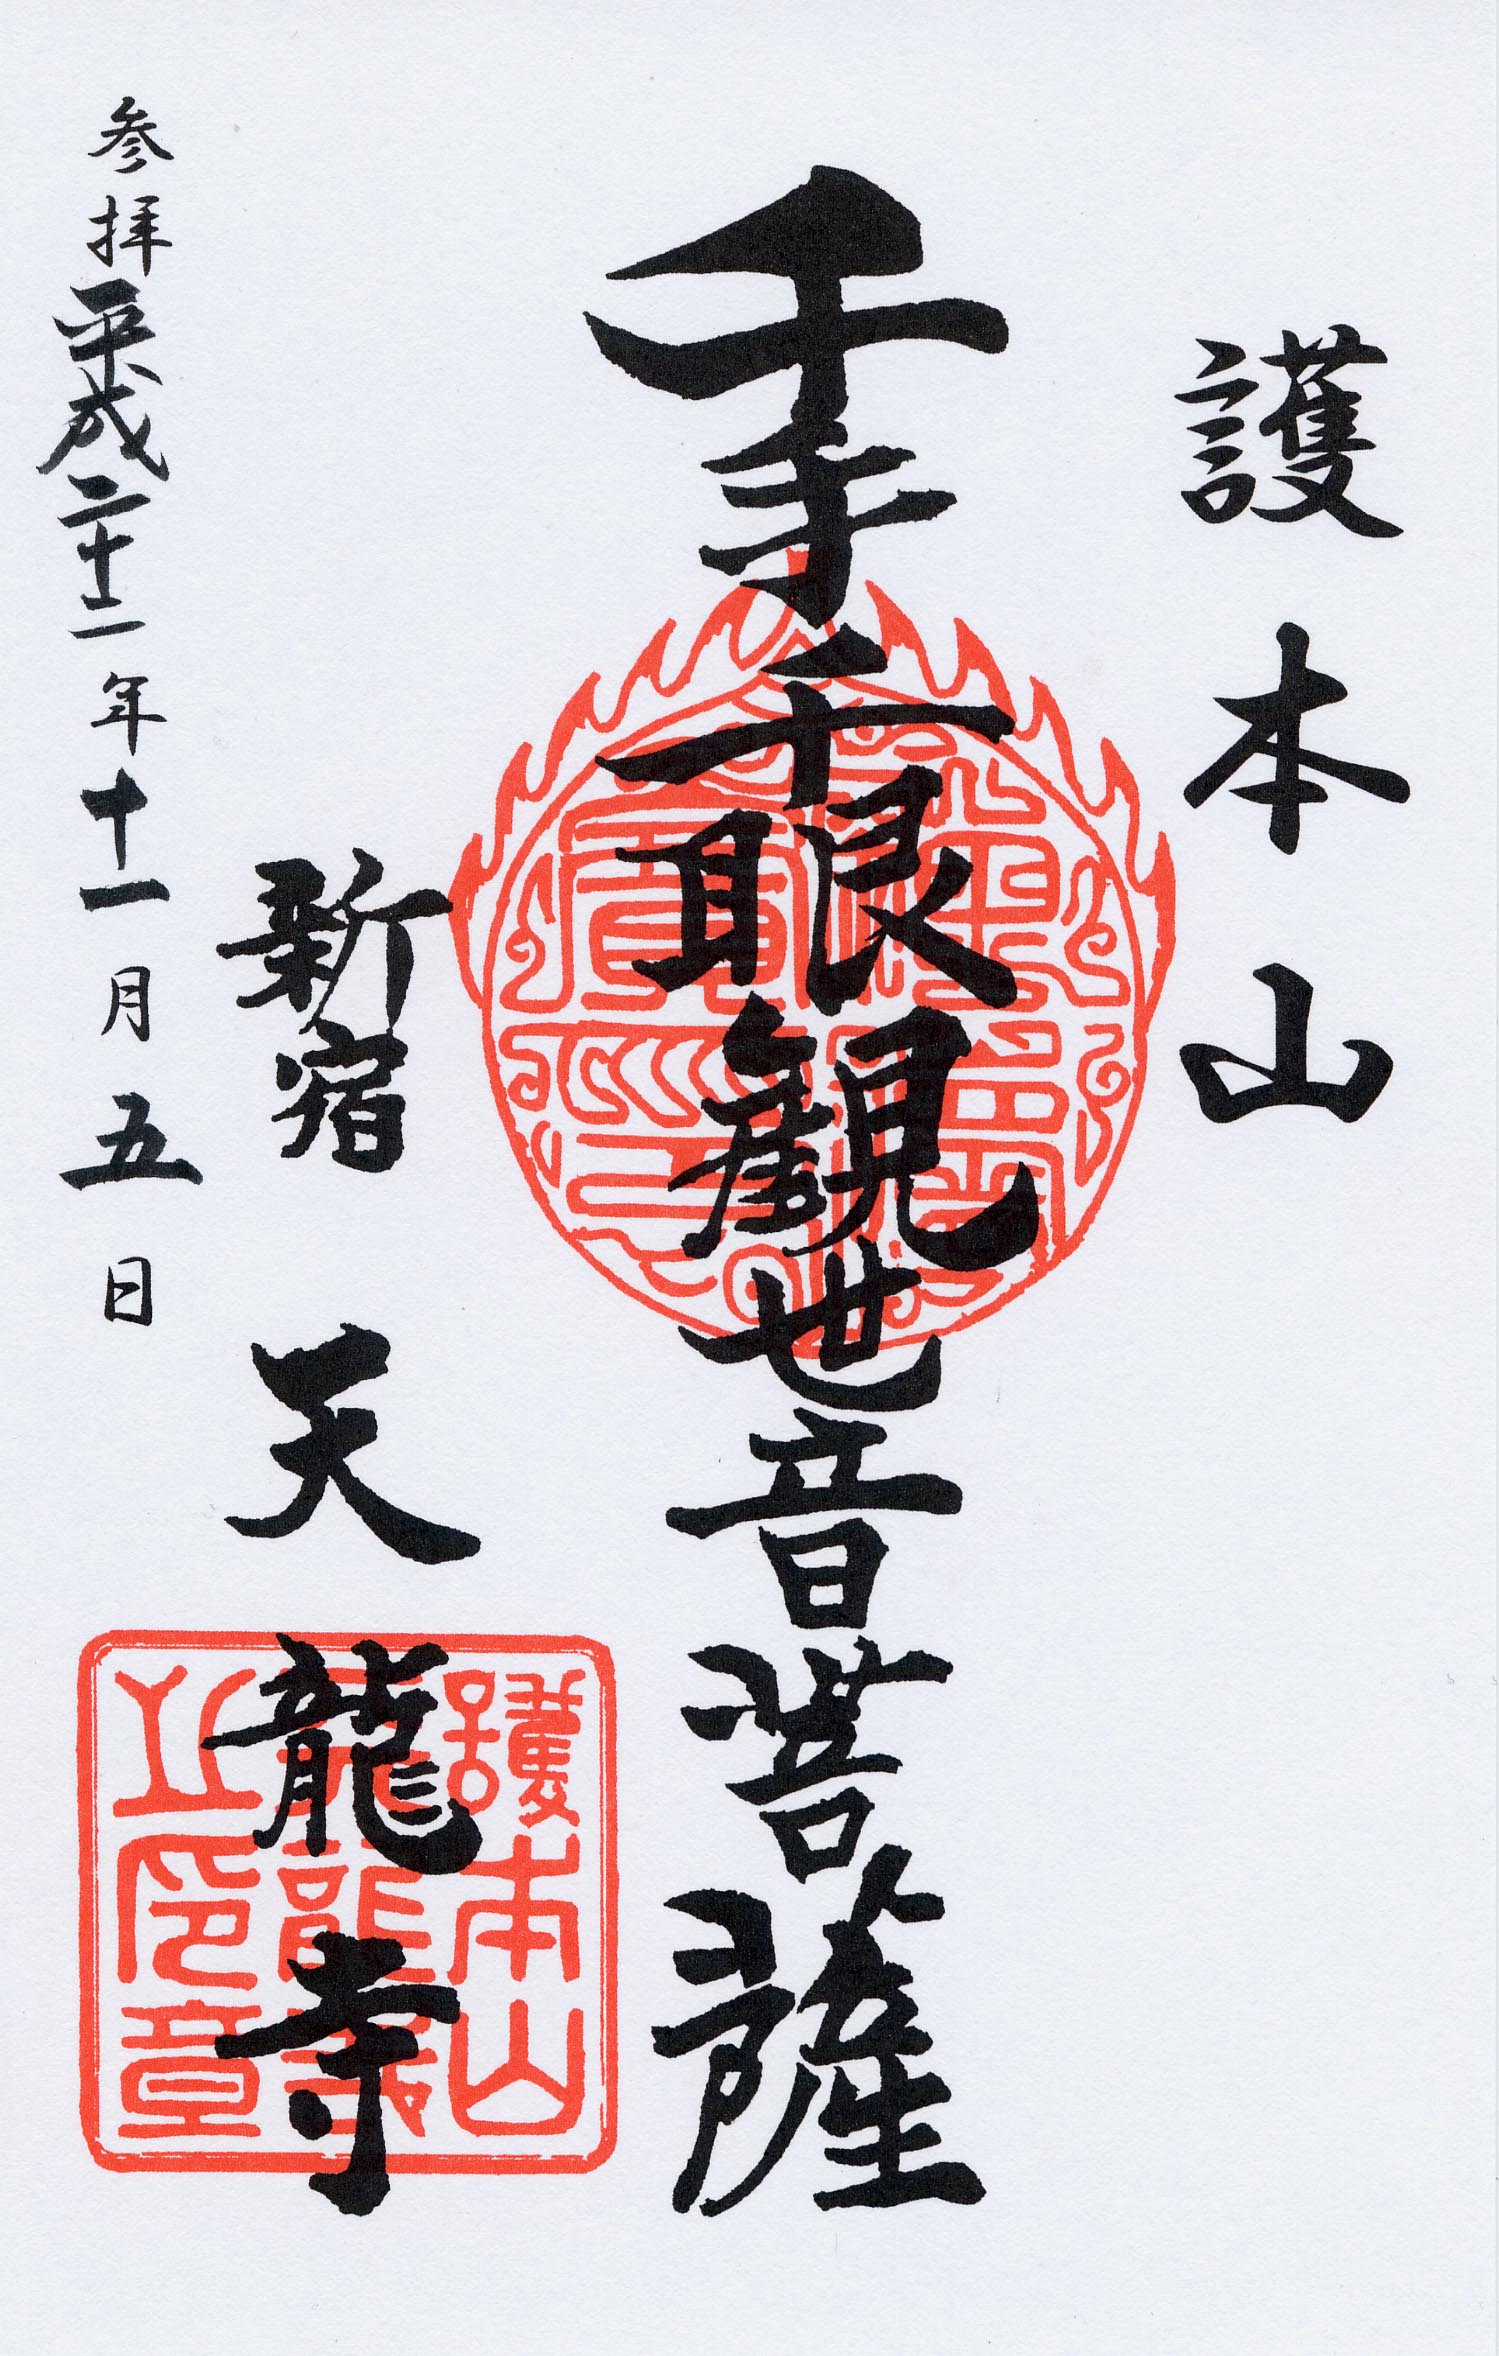 護本山
千手千眼観世音菩薩
新宿 天龍寺
参拝 平成二十二年十一月五日
護本山
天龍寺
之印章